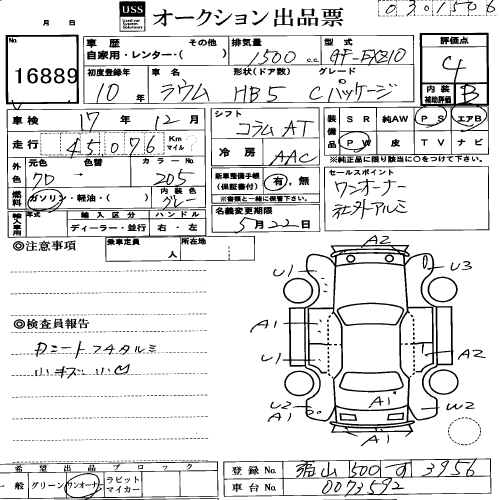 USS オークション出品票
0301506
月 日
No. 16889
車歴 その他 自家用・レンター・( )
排気量 1500 c.c.
型式 GF-EXZ10
評価点 4
初度登録年 10年
車名 ラウム
形状(ドア数) HB5
グレード Cパッケージ
内装補助評価 B
車検 17年 12月
シフト コラムAT
装備品 SR 純AW PS エアB
PW 皮 TV ナビ
走行 45076 Km マイル
冷房 AAC
※純正品に限り該当に○をつけて下さい。
外色 元色 70 色替 カラーNo 205
新車整備手帳(保証書付) 有・無
※書類と一緒に保管下さい。
セールスポイント
ワンオーナー
社外アルミ
燃料 ガソリン・軽油・( )
内装色 グレー
名義変更期限 5月22日
輸入車用 年式 輸入区分 ディーラー・並行 ハンドル 右・左
◎注意事項
乗車定員 人 所在地
◎検査員報告
小キズ 小凹
A2
U1 U3
A1
U1 A2
U2 A1 A1 W2
A1
希望出品ブロック
一般 グリーン ワンオーナー ラビットマイカー
登録No. 500 す 3956
車台No. 0073592